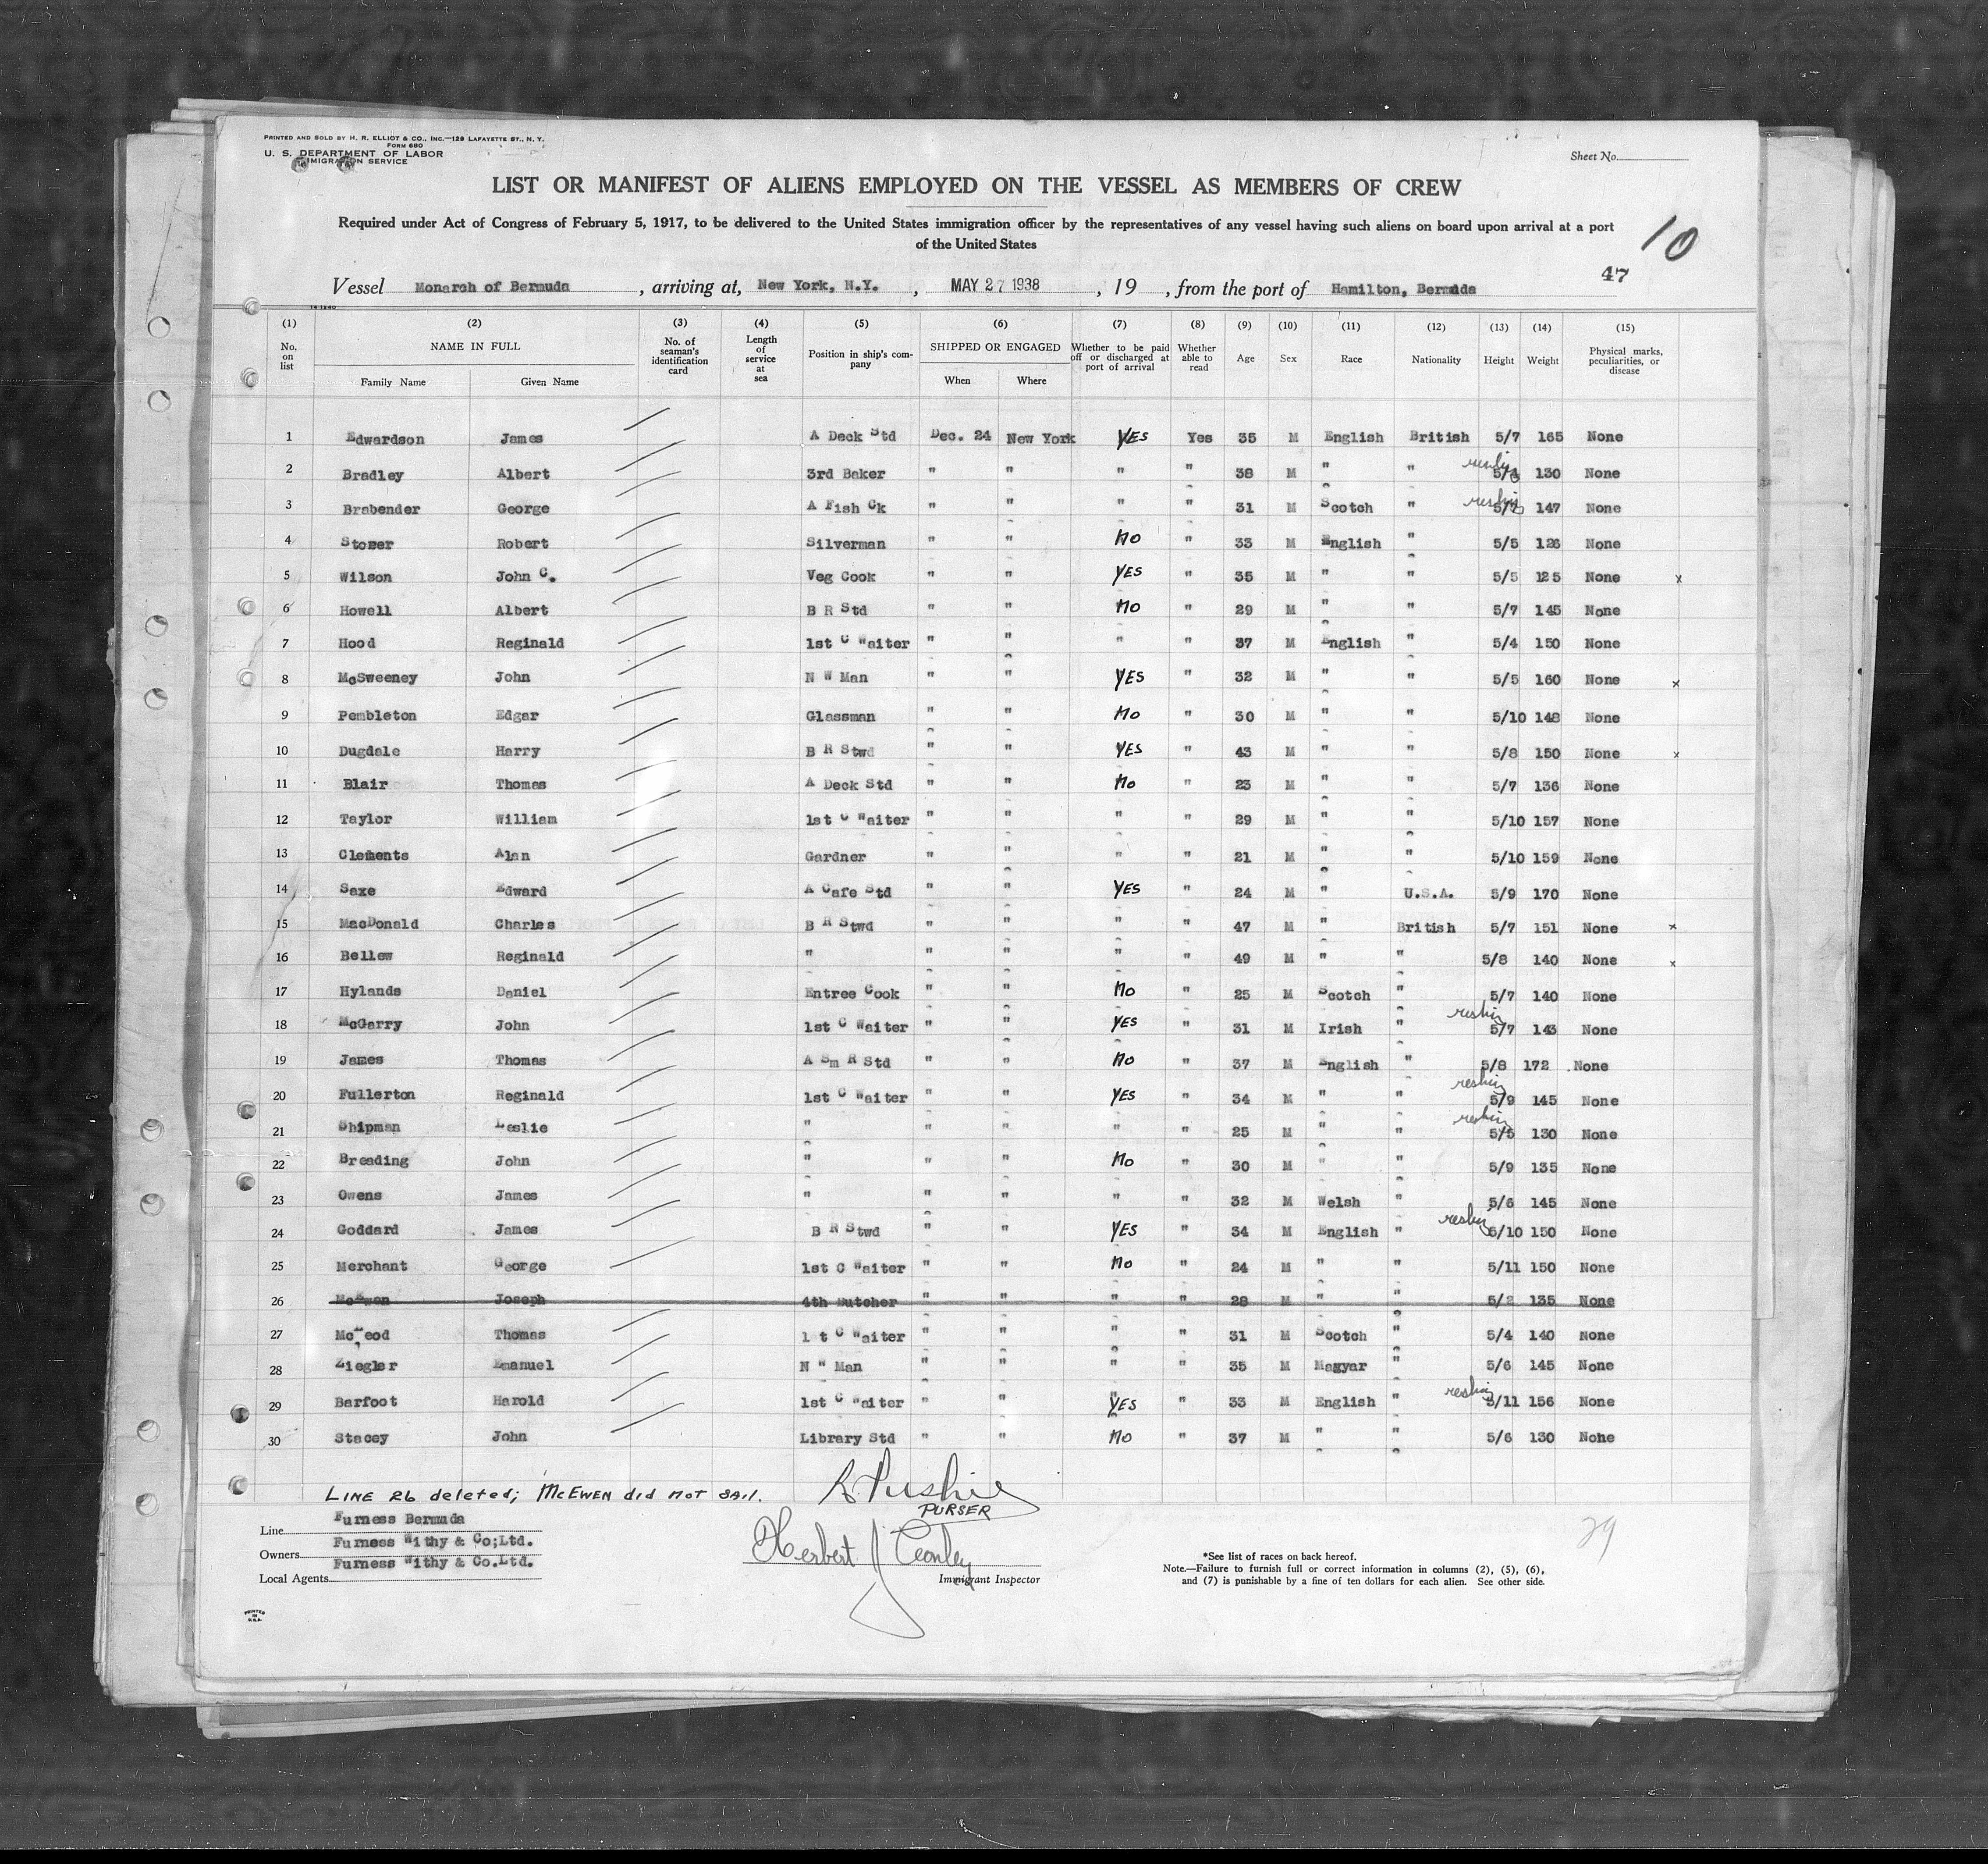 PRINTED AND SOLD BY H. R. ELLIOT & CO., INC.—129 LAFAYETTE ST., N. Y.
FORM 680
U. S. DEPARTMENT OF LABOR
IMMIGRATION SERVICE
Sheet No.
LIST OR MANIFEST OF ALIENS EMPLOYED ON THE VESSEL AS MEMBERS OF CREW
Required under Act of Congress of February 5, 1917, to be delivered to the United States immigration officer by the representatives of any vessel having such aliens on board upon arrival at a port
of the United States
10
47
Vessel Monarch of Bermuda, arriving at, New York, N.Y., MAY 27 1938, 19 , from the port of Hamilton, Bermuda
(1) No. on list (2) NAME IN FULL Family Name Given Name (3) No. of seaman's identification card (4) Length of service at sea (5) Position in ship's company (6) SHIPPED OR ENGAGED When Where (7) Whether to be paid off or discharged at port of arrival (8) Whether able to read (9) Age (10) Sex (11) Race (12) Nationality (13) Height (14) Weight (15) Physical marks, peculiarities, or disease
1 Edwardson James A Deck Std Dec. 24 New York YES Yes 35 M English British 5/7 165 None
2 Bradley Albert 3rd Baker " " " " 38 M " " reship 130 None
3 Brabender George A Fish Ck " " " " 31 M Scotch " reship 5/7 147 None
4 Stower Robert Silverman " " NO " 33 M English " 5/5 126 None
5 Wilson John C. Veg Cook " " YES " 35 M " " 5/5 125 None x
6 Howell Albert B R Std " " NO " 29 M " " 5/7 145 None
7 Hood Reginald 1st C Waiter " " " " 37 M English " 5/4 150 None
8 McSweeney John N W Man " " YES " 32 M " " 5/5 160 None x
9 Pembleton Edgar Glassman " " NO " 30 M " " 5/10 148 None
10 Dugdale Harry B R Stwd " " YES " 43 M " " 5/8 150 None x
11 Blair Thomas A Deck Std " " NO " 23 M " " 5/7 136 None
12 Taylor William 1st C Waiter " " " " 29 M " " 5/10 157 None
13 Clements Alan Gardner " " " " 21 M " " 5/10 159 None
14 Saxe Edward A Cafe Std " " YES " 24 M " U.S.A. 5/9 170 None
15 MacDonald Charles B R Stwd " " " " 47 M " British 5/7 151 None x
16 Bellew Reginald " " " " " 49 M " " 5/8 140 None x
17 Hylands Daniel Entree Cook " " NO " 25 M Scotch " 5/7 140 None
18 McGarry John 1st C Waiter " " YES " 31 M Irish " reship 5/7 143 None
19 James Thomas A Sm R Std " " NO " 37 M English " 5/8 172 None
20 Fullerton Reginald 1st C Waiter " " YES " 34 M " " reship 5/9 145 None
21 Shipman Leslie " " " " " 25 M " " reship 5/5 130 None
22 Breading John " " " NO " 30 M " " 5/9 135 None
23 Owens James " " " " " 32 M Welsh " 5/6 145 None
24 Goddard James B R Stwd " " YES " 34 M English " reship 5/10 150 None
25 Merchant George 1st C Waiter " " NO " 24 M " " 5/11 150 None
26 McEwen Joseph 4th Butcher " " " " 28 M " " 5/2 135 None
27 McLeod Thomas 1 t C Waiter " " " " 31 M Scotch " 5/4 140 None
28 Ziegler Emanuel N W Man " " " " 35 M Magyar " 5/6 145 None
29 Barfoot Harold 1st C Waiter " " YES " 33 M English " reship 5/11 156 None
30 Stacey John Library Std " " NO " 37 M " " 5/6 130 None
LINE 26 deleted; McEWEN did not sail.
PURSER
Line Furness Bermuda
Owners Furness Withy & Co;Ltd.
Local Agents Furness Withy & Co.Ltd.
Herbert J
Immigrant Inspector
*See list of races on back hereof.
Note.—Failure to furnish full or correct information in columns (2), (5), (6),
and (7) is punishable by a fine of ten dollars for each alien. See other side.
29
PRINTED
IN
U.S.A.